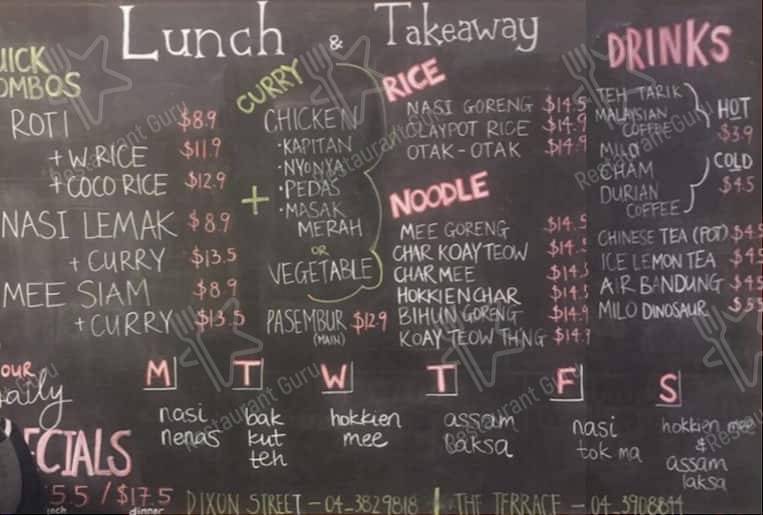 Lunch & Takeaway
UICK
OMBOS
ROTI $8.9
+ W.RICE $11.9
+ COCO RICE $12.9
NASI LEMAK $8.9
+ CURRY $13.5
MEE SIAM $8.9
+ CURRY $13.5
+
CURRY
CHICKEN
·KAPITAN
·NYONYA
·PEDAS
·MASAK
MERAH
OR
VEGETABLE
PASEMBUR $12.9
(MAIN)
RICE
NASI GORENG $14.5
CLAYPOT RICE $14.9
OTAK-OTAK $14.9
NOODLE
MEE GORENG $14.5
CHAR KOAY TEOW $14.
CHAR MEE $14.5
HOKKIEN CHAR $14.5
BIHUN GORENG $14.9
KOAY TEOW TH'NG $14.9
DRINKS
TEH TARIK
MALAYSIAN
COFFEE
HOT
$3.9
MILO
CHAM
DURIAN
COFFEE
COLD
$4.5
CHINESE TEA (POT) $4.5
ICE LEMON TEA $4.5
AIR BANDUNG $4.5
MILO DINOSAUR $5.5
OUR
aily
ECIALS
5.5 / $17.5
dinner
M
nasi
nenas
T
bak
kut
teh
W
hokkien
mee
T
assam
laksa
F
nasi
tok ma
S
hokkien mee
&
assam
laksa
DIXON STREET - 04_3829818 | THE TERRACE - 04_3908844
Restaurant Guru
Restaurant Guru
Restaurant Guru
Restaurant Guru
Restaurant Guru
Restaurant Guru
Restaurant Guru